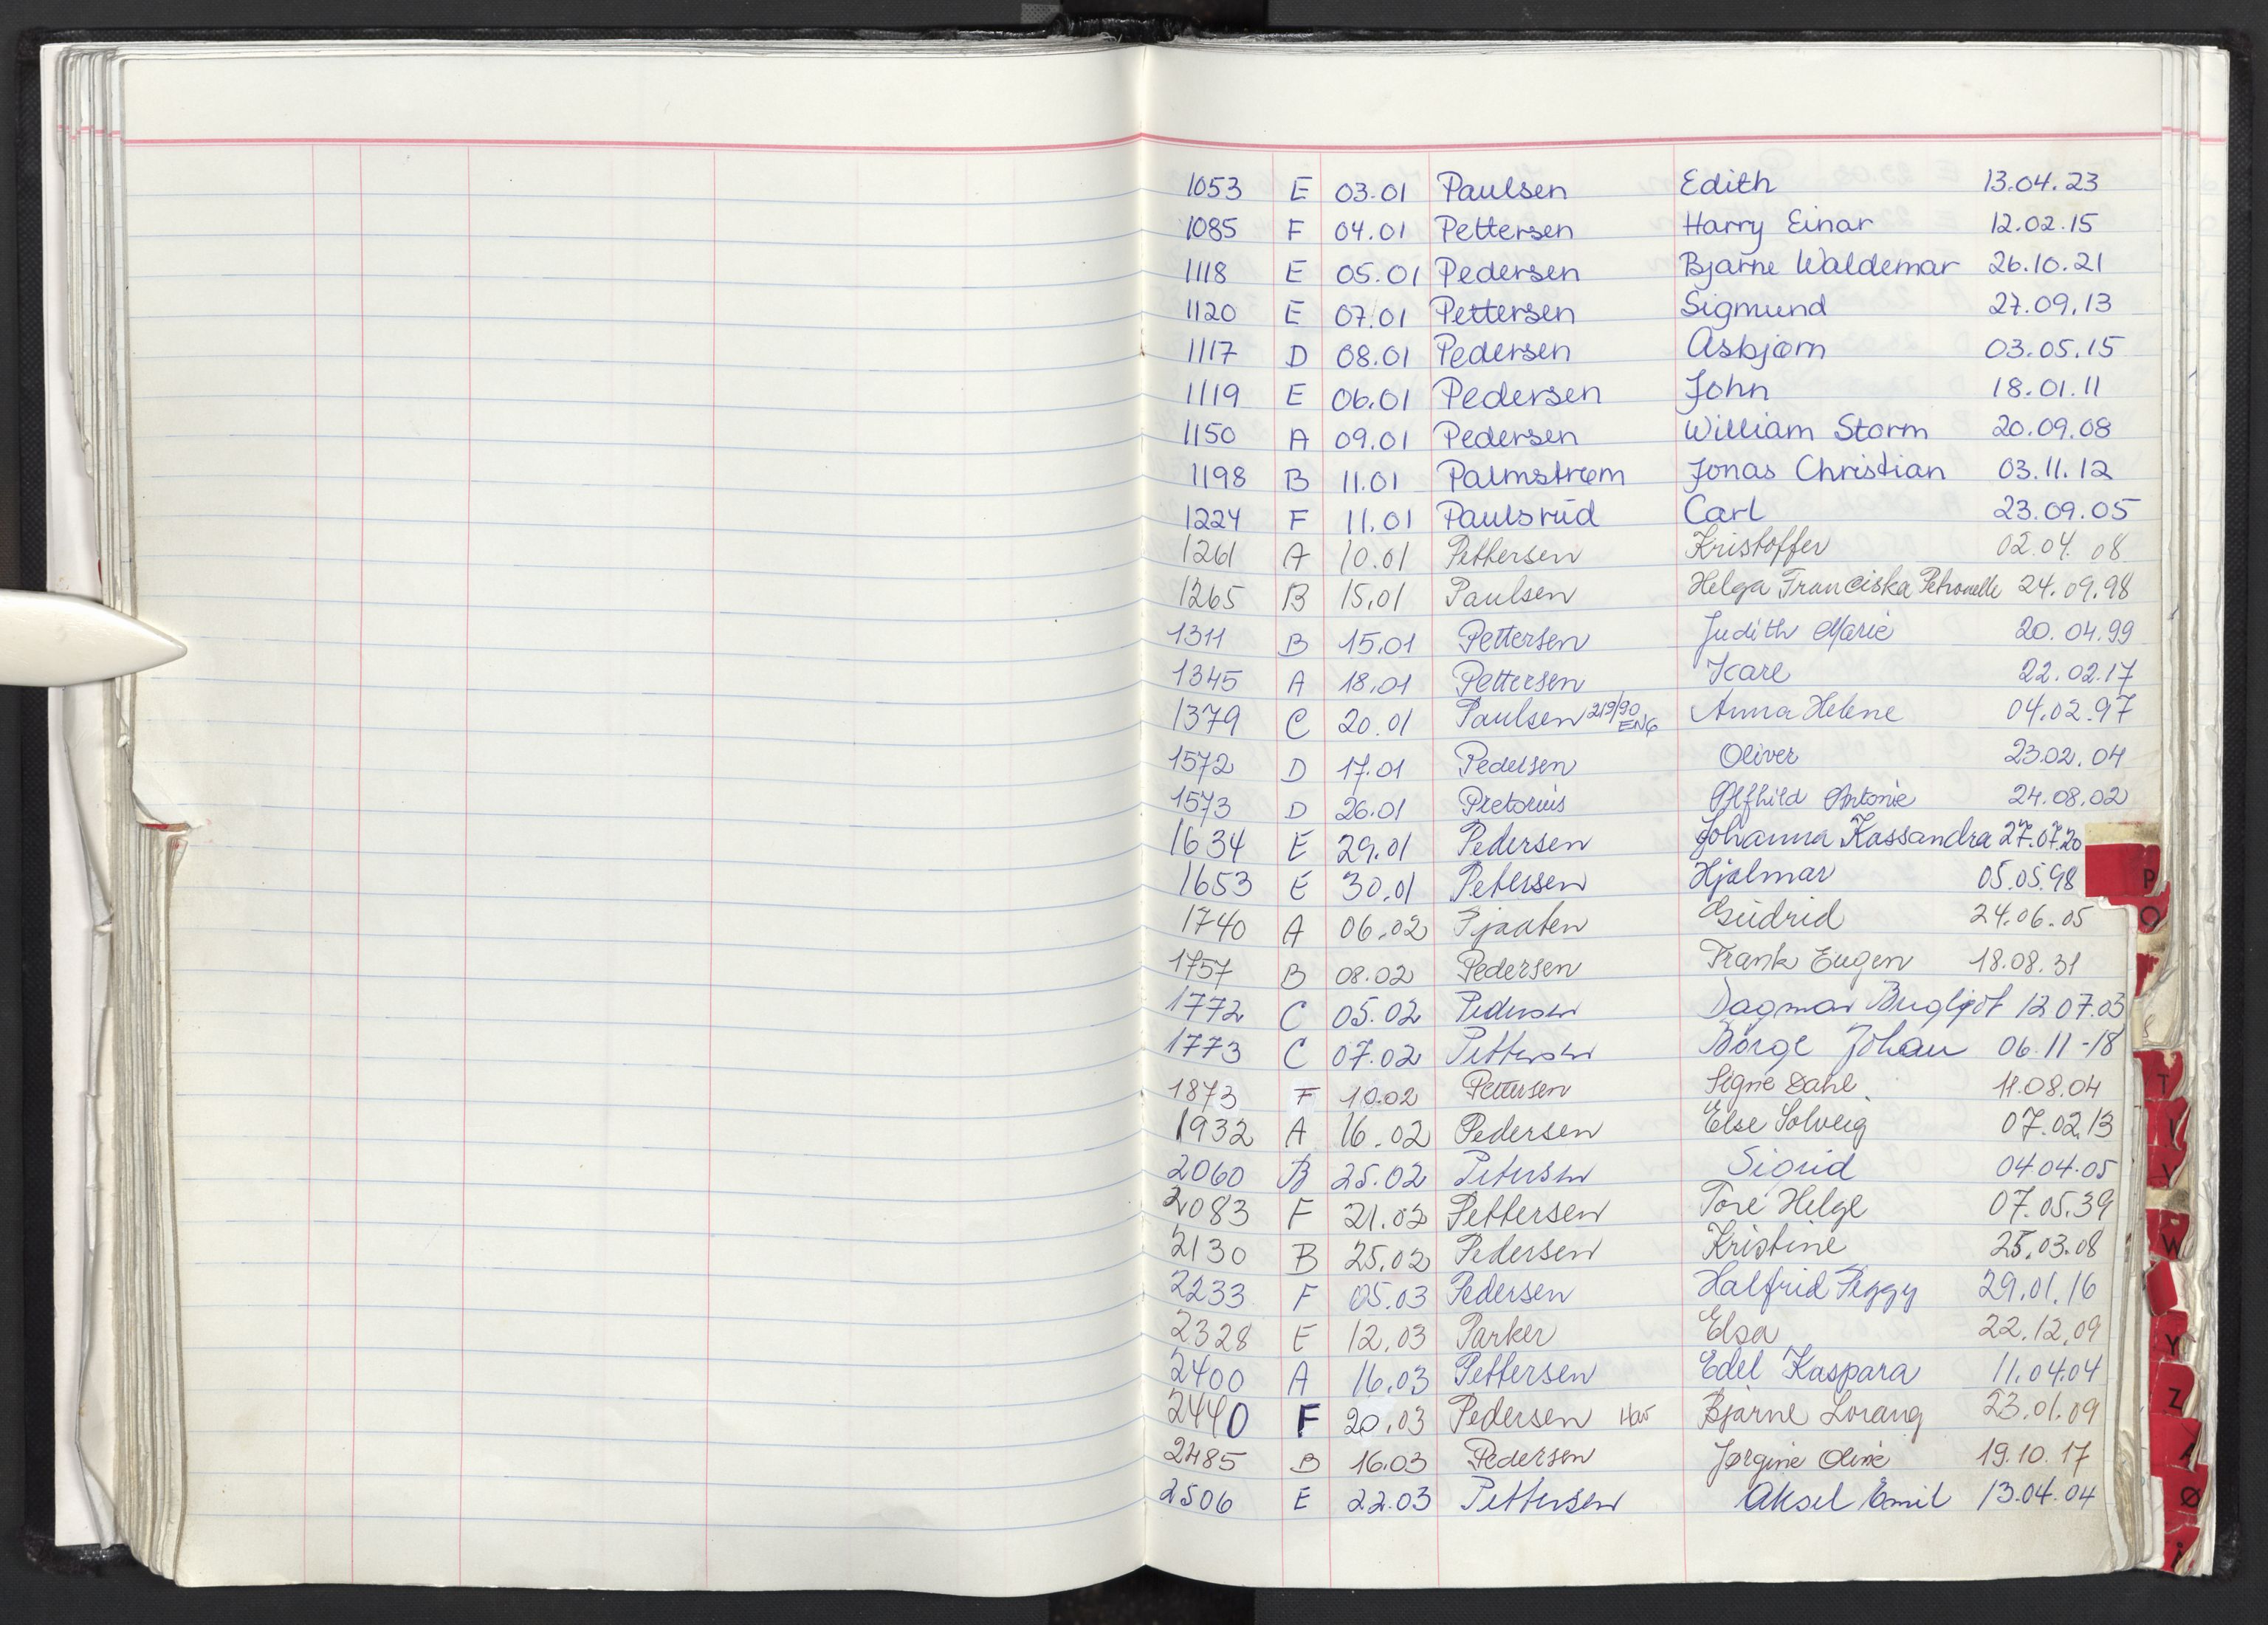 1053 E 03.01 Paulsen Edith 13.04.23
1085 F 04.01 Pettersen Harry Einar 12.02.15
1118 E 05.01 Pedersen Bjarne Waldemar 26.10.21
1120 E 07.01 Pettersen Sigmund 27.09.13
1117 D 08.01 Pedersen Asbjørn 03.05.15
1119 E 06.01 Pedersen John 18.01.11
1150 A 09.01 Pedersen William Storm 20.09.08
1198 B 11.01 Palmstrøm Jonas Christian 03.11.12
1224 F 11.01 Paulsrud Carl 23.09.05
1261 A 10.01 Pettersen Kristoffer 02.04.08
1265 B 15.01 Paulsen Helga Franciska Petronelle 24.09.98
1311 B 15.01 Pettersen Judith Marie 20.04.99
1345 A 18.01 Pettersen Kare 22.02.17
1379 C 20.01 Paulsen 219/90 ENG Anna Helene 04.02.97
1572 D 17.01 Pedersen Oliver 23.02.04
1573 D 26.01 Pretorius Alfhild Antonie 24.08.02
1634 E 29.01 Pedersen Johanna Kassandra 27.07.20
1653 E 30.01 Petersen Hjalmar 05.05.98
1740 A 06.02 Pjaaten Gudrid 24.06.05
1757 B 08.02 Pedersen Frank Eugen 18.08.31
1772 C 05.02 Pedersen Dagmar Bergljot 12 07.03
1773 C 07.02 Pettersen Börge Johan 06.11-18
1873 F 10.02 Pettersen Signe Dahl 11.08.04
1932 A 16.02 Pedersen Else Solveig 07.02.13
2060 B 25.02 Petersen Sigrid 04.04.05
2083 F 21.02 Pettersen Tore Helge 07.05.39
2130 B 25.02 Pedersen Kristine 25.03.08
2233 F 05.03 Pedersen Halfrid Peggy 29.01.16
2328 E 12.03 Parker Elsa 22.12.09
2400 A 16.03 Pettersen Edel Kaspara 11.04.04
2440 F 20.03 Pedersen Bjarne Lorang 23.01.09
2485 B 16.03 Pedersen Jørgine Oline 19.10.17
2506 E 22.03 Pettersen Aksel Emil 13.04.04
P
O
T
V
W
Y
Z
Ø